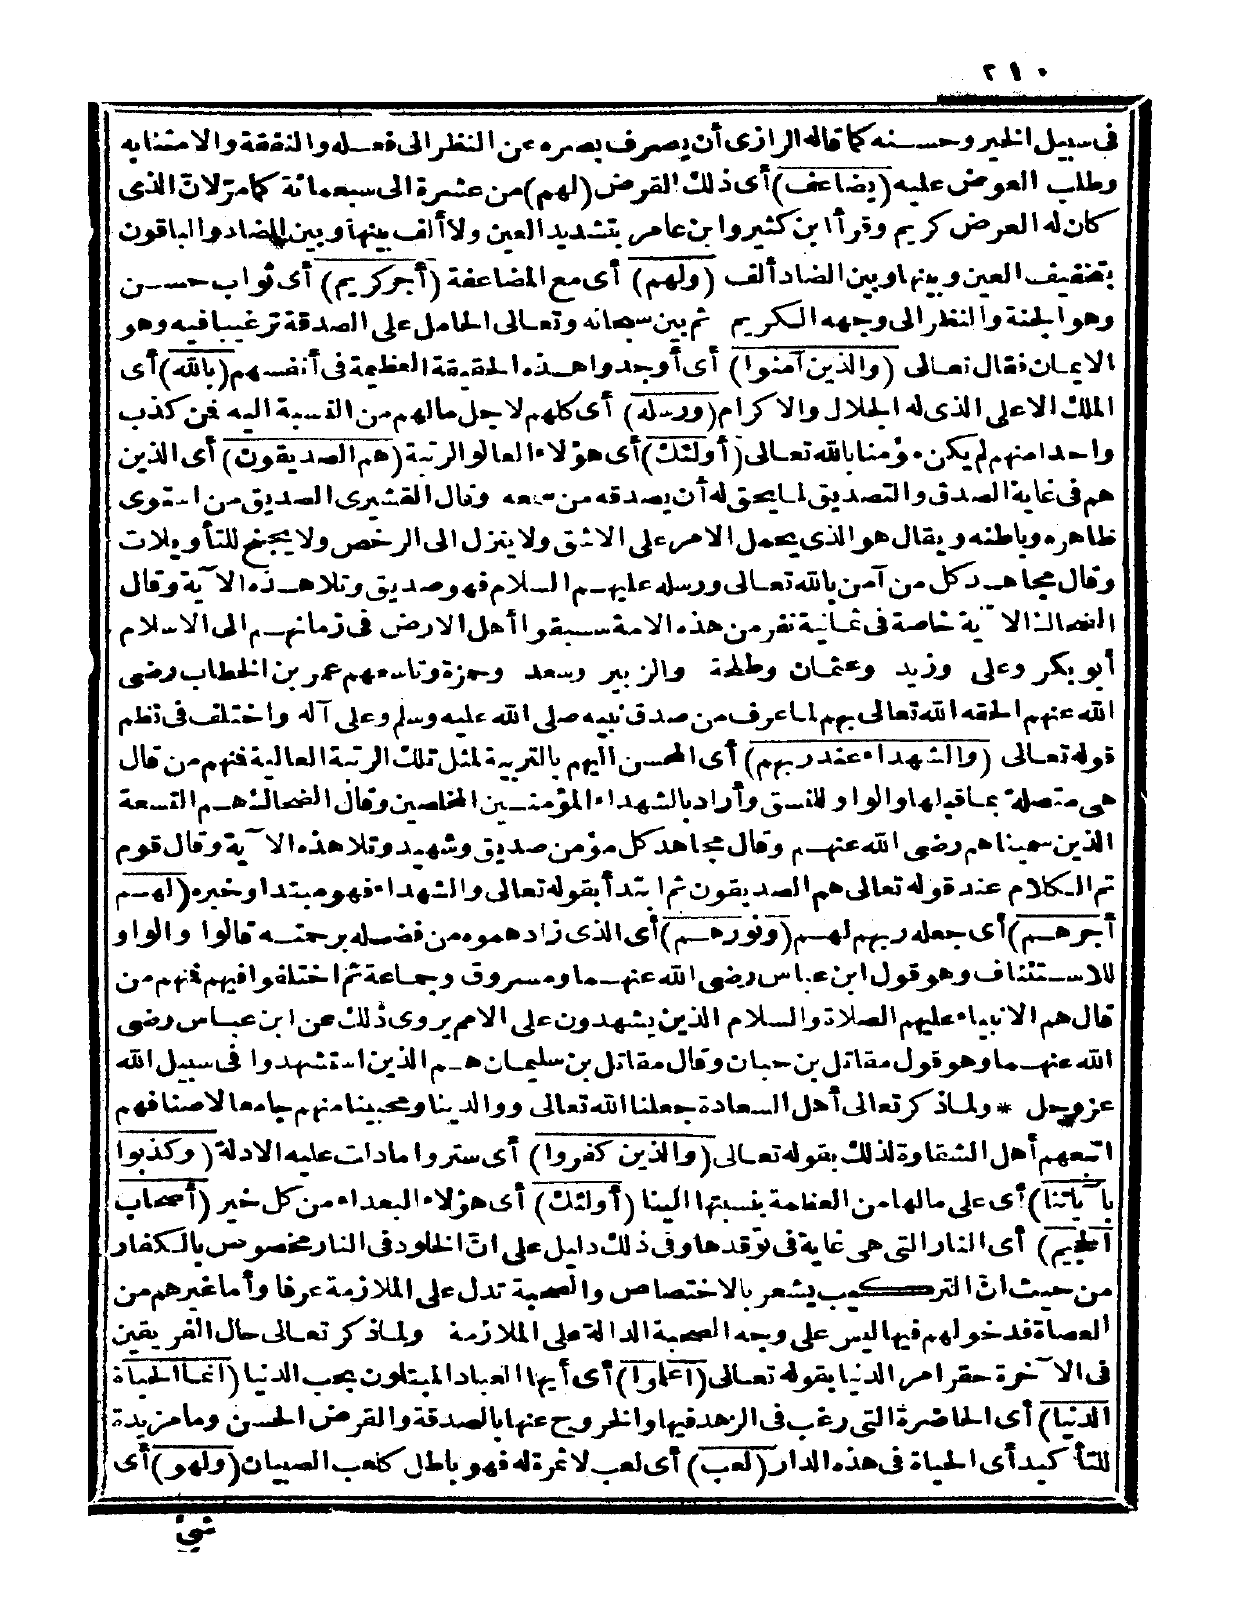 ٢١٠
فى سبيل الخير وحسنه كما قاله الرازى أن يصرف بصره عن النظر الى فعله والنفقة والامتنانبه
وطلب العوض عليه (يضاعف) أى ذلك القرض (لهم) من عشرة الى سبعمائة كما مرّ لانّ الذى
كان له العرض كريم وقرأ ابن كثير وابن عامر بتشديد العين ولا ألف بينها وبين الضاد والباقون
بتخفيف العين وبينها وبين الضاد ألف (ولهم) أى مع المضاعفة (أجر كريم) أى ثواب حسن
وهو الجنة والنظر الى وجهه الكريم ثم بين سبحانه وتعالى الحامل على الصدقة ترغيبا فيه وهو
الايمان فقال تعالى (والذين آمنوا) أى أوجدوا هذه الحقيقة العظيمة فى أنفسهم (بالله) أى
الملك الاعلى الذى له الجلال والاكرام (ورسله) أى كلهم لاجل مالهم من النسبة اليه فمن كذب
واحدا منهم لم يكن مؤمنا بالله تعالى (أولئك) أى هؤلاء العالو الرتبة (هم الصديقون) أى الذين
هم فى غاية الصدق والتصديق لما يحق له أن يصدقه من سمعه وقال القشيرى الصديق من استوى
ظاهره وباطنه ويقال هو الذى يحمل الامر على الاشق ولا ينزل الى الرخص ولا يجنح للتأويلات
وقال مجاهد كل من آمن بالله تعالى ورسله عليهم السلام فهو صديق وتلا هذه الآية وقال
الضحاك الآية خاصة فى ثمانية نفر من هذه الامة سبقوا أهل الارض فى زمانهم الى الاسلام
أبو بكر وعلى وزيد وعثمان وطلحة والزبير وسعد وحمزة وتاسعهم عمر بن الخطاب رضى
الله عنهم الحقه الله تعالى بهم لما عرف من صدق نيته صلى الله عليه وسلم وعلى آله واختلف فى نظم
قوله تعالى (والشهداء عند ربهم) أى المحسن اليهم بالتربية لمثل تلك الرتبة العالية فمنهم من قال
هى متصلة بما قبلها والواو للنسق وأراد بالشهداء المؤمنين المخلصين وقال الضحاك هم التسعة
الذين سميناهم رضى الله عنهم وقال مجاهد كل مؤمن صديق وشهيد وتلا هذه الآية وقال قوم
تم الكلام عند قوله تعالى هم الصديقون ثم ابتدأ بقوله تعالى والشهداء فهو مبتدا وخبره (لهم
أجرهم) أى جعله ربهم لهم (ونورهم) أى الذى زادهموه من فضله برحمته قالوا والواو
للاستئناف وهو قول ابن عباس رضى الله عنهما ومسروق وجماعة ثم اختلفوا فيهم فمنهم من
قال هم الانبياء عليهم الصلاة والسلام الذين يشهدون على الامم يروى ذلك عن ابن عباس رضى
الله عنهما وهو قول مقاتل بن حبان وقال مقاتل بن سليمان هم الذين استشهدوا فى سبيل الله
عز وجل * ولما ذكر تعالى أهل السعادة جعلنا الله تعالى ووالدينا ومحبينا منهم جامعا لاصنافهم
اتبعهم أهل الشقاوة لذلك بقوله تعالى (والذين كفروا) أى ستروا مادات عليه الادلة (وكذبوا
بآياتنا) أى على مالها من العظمة بنسبتها الينا (أولئك) أى هؤلاء البعداء من كل خير (أصحاب
الجحيم) أى النار التى هى غاية فى توقدها وفى ذلك دليل على انّ الخلود فى النار مخصوص بالكفار
من حيث انّ التركيب يشعر بالاختصاص والصحبة تدل على الملازمة عرفا وأما غيرهم من
العصاة فدخولهم فيها ليس على وجه الصحبة الدالة على الملازمة ولما ذكر تعالى حال الفريقين
فى الآخرة حقر امر الدنيا بقوله تعالى (اعلموا) أى أيها العباد المبتلون بحب الدنيا (انما الحياة
الدنيا) أى الحاضرة التى رغب فى الزهد فيها والخروج عنها بالصدقة والقرض الحسن وما مزيدة
للتأكيد أى الحياة فى هذه الدار (لعب) أى لعب لا ثمرة له فهو باطل كلعب الصبيان (ولهو) أى
شئ